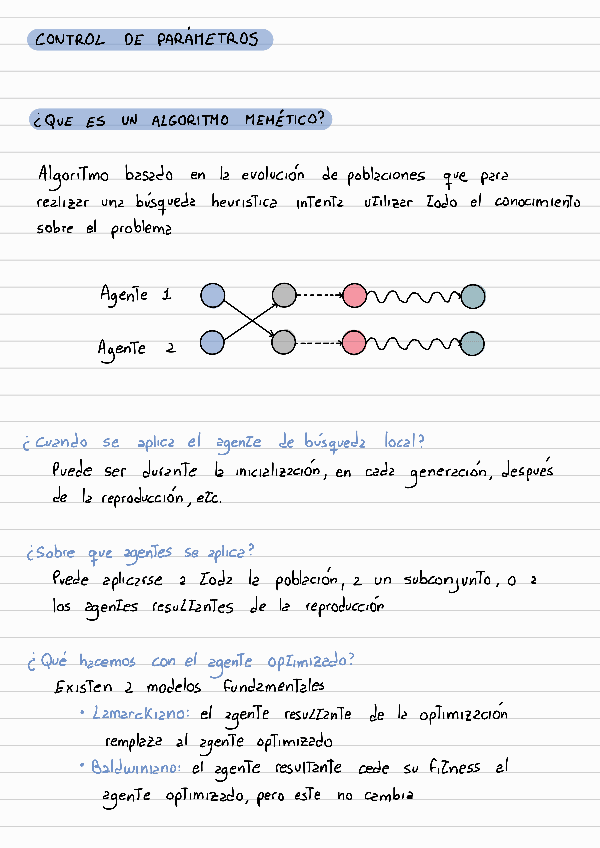 CONTROL DE PARÁMETROS
¿QUE ES UN ALGORITMO MEMÉTICO?
Algoritmo basado en la evolución de poblaciones que para
realizar una búsqueda heurística intenta utilizar todo el conocimiento
sobre el problema
Agente 1
Agente 2
¿Cuando se aplica el agente de búsqueda local?
Puede ser durante la inicialización, en cada generación, después
de la reproducción, etc.
¿Sobre que agentes se aplica?
Puede aplicarse a toda la población, a un subconjunto, o a
los agentes resultantes de la reproducción
¿Qué hacemos con el agente optimizado?
Existen 2 modelos fundamentales
• Lamarckiano: el agente resultante de la optimización
remplaza al agente optimizado
• Baldwiniano: el agente resultante cede su fitness al
agente optimizado, pero este no cambia